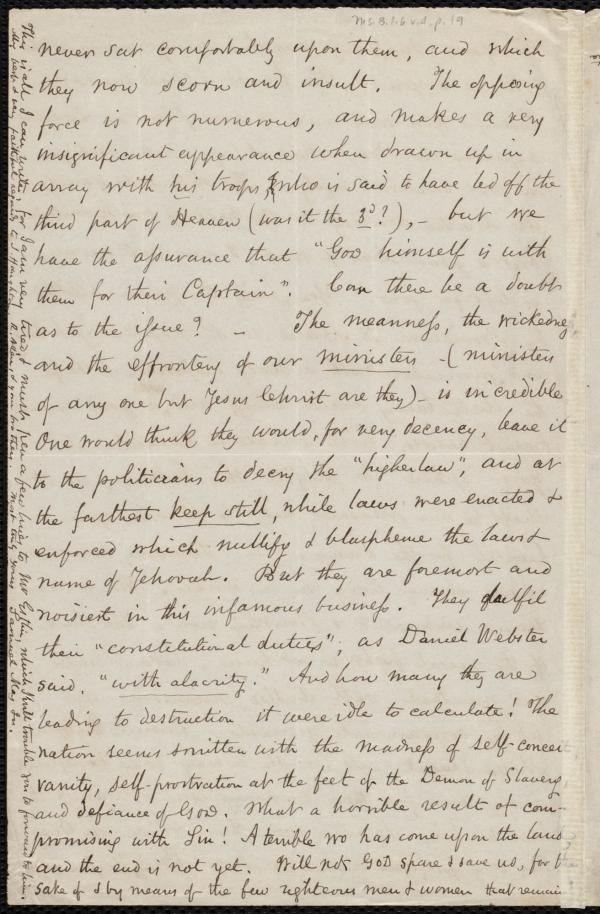 Ms. B.1.6 v.4, p. 19
never sat comfortably upon them, and which
they now scorn and insult. The opposing
force is not numerous, and makes a very
insignificant appearance when drawn up in
array with his troops, who is said to have led off the
third part of Heaven (was it the 3d?), – but we
have the assurance that "God himself is with
them for their Captain". Can there be a doubt
as to the issue? – The meanness, the wickedness
and the effrontery of our ministers – (ministers
of any one but Jesus Christ are they) – is incredible
One would think they would, for very decency, leave it
to the politicians to decry the "higher law", and at
the farthest keep still, while laws were enacted &
enforced which nullify & blaspheme the laws &
name of Jehovah. But they are foremost and
noisiest in this infamous business. They fulfil
their "constitutional duties", as Daniel Webster
said, "with alacrity." And how many they are
leading to destruction it were idle to calculate! The
nation seems smitten with the madness of self-conceit
vanity, self-prostration at the feet of the Demon of Slavery,
and defiance of God. What a horrible result of com-
promising with Sin! A terrible wo has come upon the land,
and the end is not yet. Will not God spare & save us, for the
sake of & by means of the few righteous men & women that remain
This is all I can write; for I am very tired, & must pen a few lines to Mr Estlin, which I shall trouble you to forward to him.
My best & very faithful regards to J. Haughton, R. Allen, & your brothers. Most truly yours Samuel May Jr.